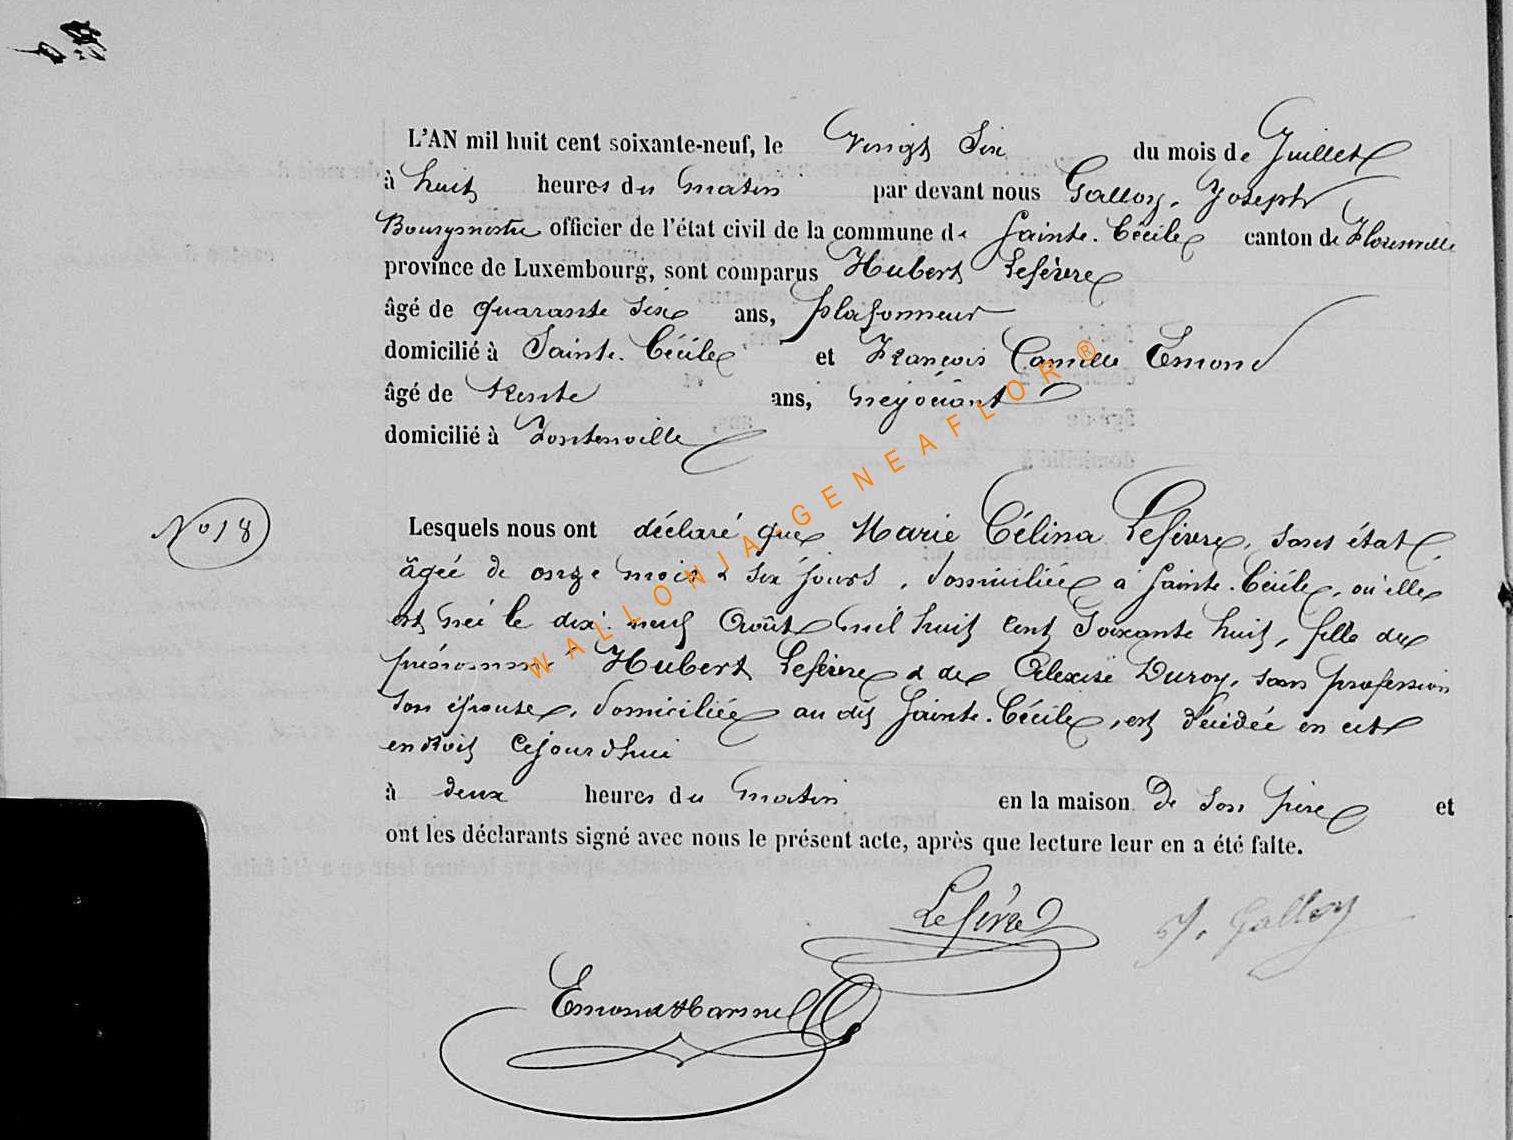 L'AN mil huit cent soixante-neuf, le Vingt Six du mois de Juillet
à huit heures du matin par devant nous Galloy, Joseph
Bourgmestre officier de l'état civil de la commune de Sainte-Cécile canton de Florenville
province de Luxembourg, sont comparus Hubert Lefèvre
âgé de quarante six ans, plafonneur
domicilié à Sainte-Cécile et François Camille Emond
âgé de trente ans, négociant
domicilié à Fontenoille
N° 18
Lesquels nous ont déclaré que Marie Célina Lefèvre, sans état,
âgée de onze mois & six jours, domiciliée à Sainte-Cécile, où elle
est née le dix-neuf Août mil huit cent Soixante huit, fille du
prénommé Hubert Lefèvre & de Alexise Duroy, sans profession
son épouse, domiciliée au dit Sainte-Cécile, est décédée en cet
endroit cejourd'hui
à deux heures du matin en la maison de son père et
ont les déclarants signé avec nous le présent acte, après que lecture leur en a été faite.
Lefèvre J. Galloy
Emond
WALLONIA-GENEAFLOR®